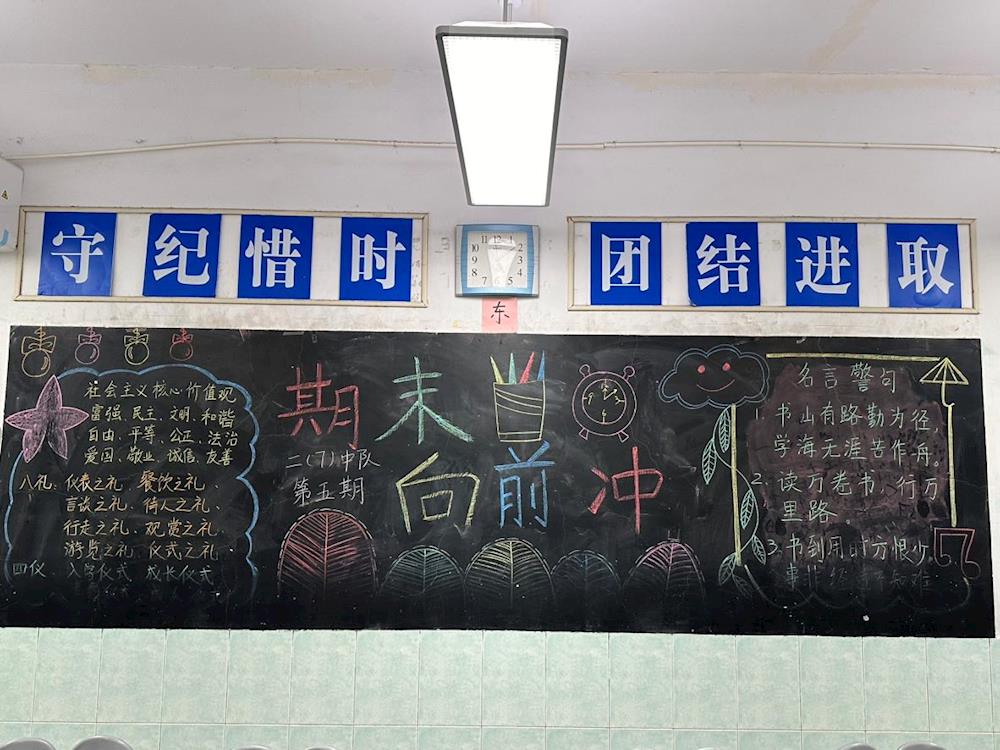 守纪惜时
团结进取
11 12 1
10 2
9 3
8 4
7 6 5
东
社会主义核心价值观
富强、民主、文明、和谐
自由、平等、公正、法治
爱国、敬业、诚信、友善
八礼、仪表之礼、餐饮之礼、
言谈之礼、待人之礼、
行走之礼、观赏之礼、
游览之礼、仪式之礼、
四仪 入学仪式 成长仪式
期末
二(7)中队
第五期
向前冲
名言警句
1. 书山有路勤为径,
学海无涯苦作舟。
2. 读万卷书,行万
里路
3. 书到用时方恨少,
事非经 知难